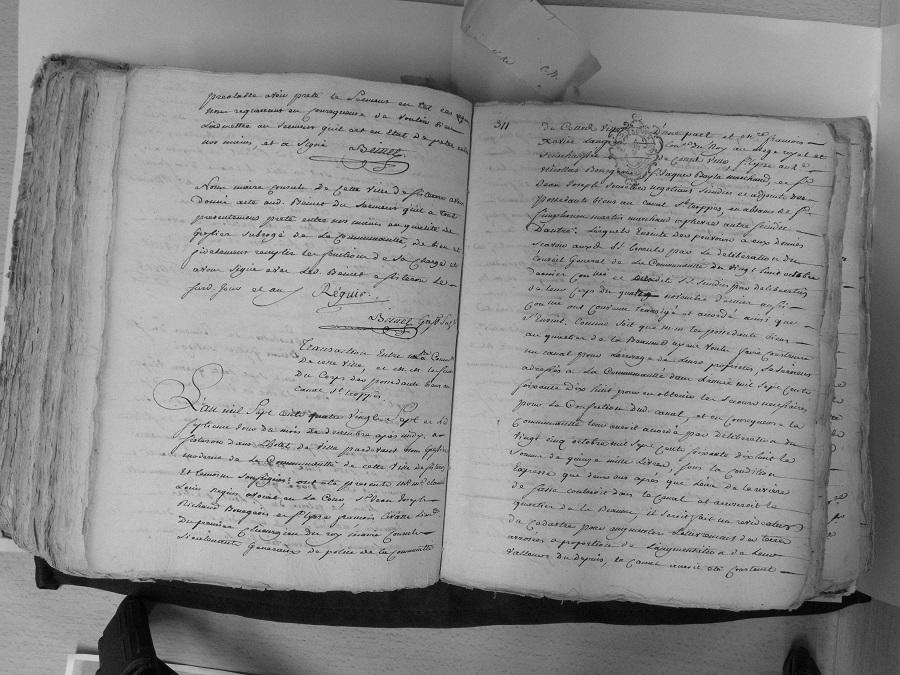 prealable avoir preté le Serment en tel cas
nous requerant en Consequence de vouloir bien
L'admettre au Serment qu'il est en Etat de preter entre
nos mains, et a Signé
Beinet
Nous maire Consuls de Cette Ville de Sisteron avons
donné acte aud. Beinet du Serment qu'il a tout
presentement preté entre nos mains en qualité de
Greffier Subrogé de La Communauté, de bien et
fidelement remplir les fonctions de Sa Charge et
avons Signé avec Led. Beinet a Sisteron Le
Susd. Jour et an
Réguis.
Beinet Greff. Sub.
Transaction Entre la Comm.té
De cette Ville, et les Sindics
Du Corps des possedants biens au
Canal St tropés.
L'an mil Sept cent quatre Vingt Sept et le dix
Septieme Jour du mois de decembre apres midy, a
Sisteron dans L'hotel de Ville pardevant nous Greffier
moderne de La Communauté de cette Ville de Sisteron
et temoins Soussignés ont été presents
Louis Reguis avocat en La Cour, Sr Jean Joseph
Richaud Bourgeois et Sr
Du premier Chirurgien du roy maire Consuls
Lieutenants Generaux de police de La Communauté
311
de Cette Ville D'une part et
Xavier Cons.er Du Roy au Siege royal et
Senechaussée de Cette Ville,
Nicollas Bourgeois, Sr Jaques marchand, et Sr
Jean Joseph negotiant Sindics et adjoints des
possedants biens au Canal St tropés, en absence de Sr
martin marchand orphevre autre Sindic
D'autre. Lesquels Ensuite des pouvoirs a eux donnés
Scavoir auxd. Srs Consuls par La deliberation du
Conseil General de La Communauté du Vingt huit octobre
dernier et Lesd. Srs Sindics par deliberation
de leur Corps du quatre novembre dernier
ont Convenu transigé et accordé ainsi que
S'ensuit. Comme Soit que les possedants biens
au quartier de la Beaume ayant Voulu faire Construire
un Canal pour L'arrosage de Leurs proprietés, Se Seroient
adressés a La Communauté dans L'année mil Sept Cents
Soixante Dix huit pour en obtenir les Secours necessaires
pour La Confection dud. Canal, et en Consequence La
Communauté leur auroit accordé par deliberation du
Vingt Cinq octobre mil Sept Cents Soixante dix huit La
Somme de quinze mille Livres, Sous La Condition
Expresse que deux ans après que L'eau de la riviere
de Sasse couleroit dans Le Canal et arroseroit le
quartier de La Beaume, il Seroit fait un
Du Cadastre pour augmenter L'alivrement des terres
arrosées a proportion de L'augmentation de Leur
Valleur. Du depuis, le Canal auroit été Construit